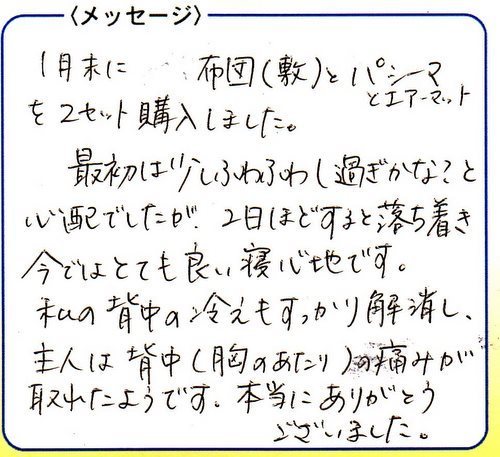 〈メッセージ〉
1月末に 布団(敷)とパシーマ
とエアーマット
を2セット購入しました。
最初は少しふわふわし過ぎかな?と
心配でしたが、2日ほどすると落ち着き
今ではとても良い寝心地です。
私の背中の冷えもすっかり解消し、
主人は背中(胸のあたり)の痛みが
取れたようです。本当にありがとう
ございました。